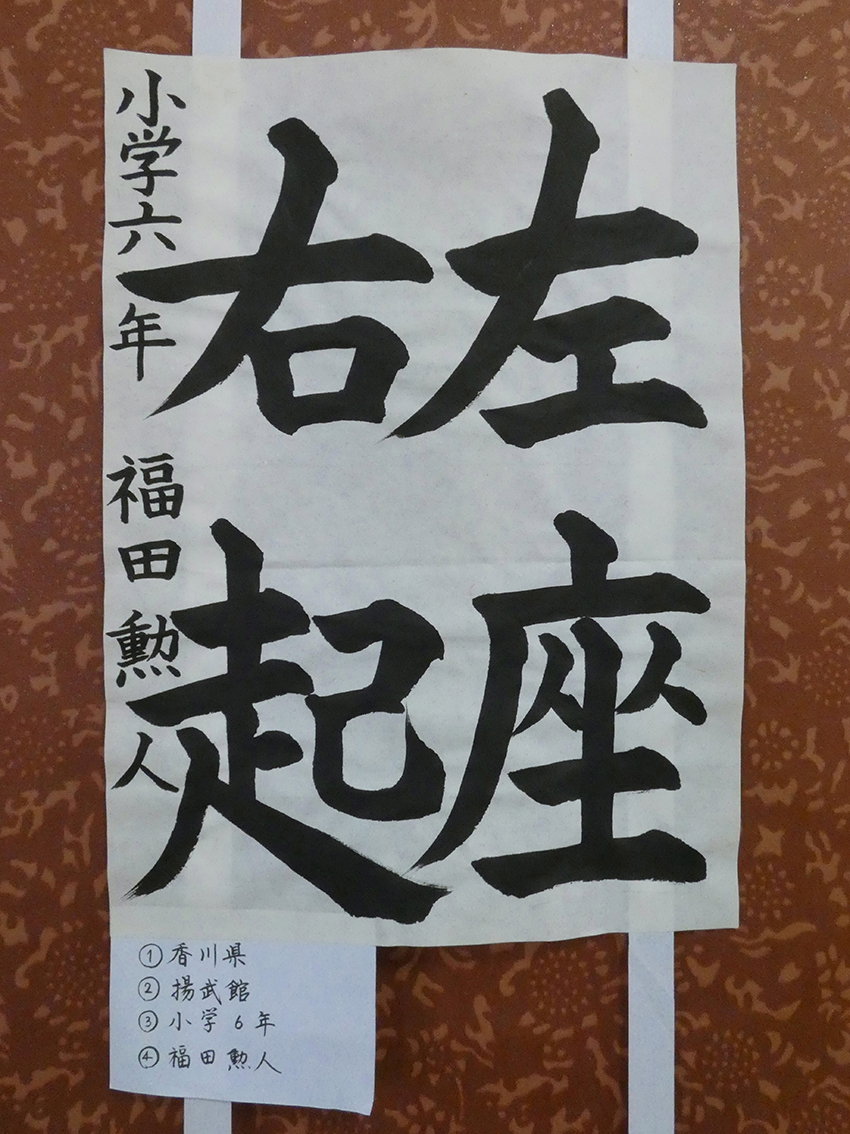 左座
右起
小学六年 福田勲人
①香川県
②揚武館
③小学6年
④福田勲人